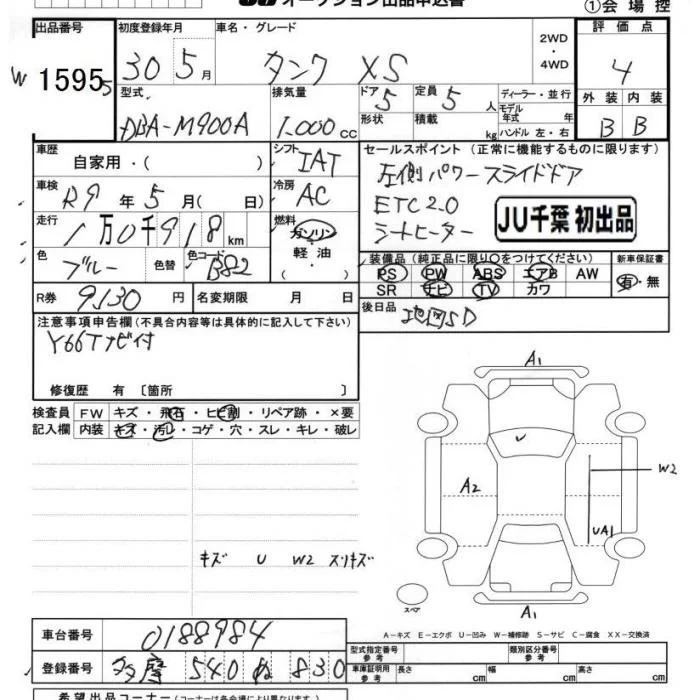 ①会場控
出品番号 初度登録年月 車名・グレード 評価点
W 15955 30 5月 タンク XS 2WD・4WD 4
型式 排気量 ドア 定員 ディーラー・並行 外装 内装
DBA-M900A 1,000cc 5 5人 モデル年式 年 B B
形状 積載 kg ハンドル 左・右
車歴 自家用・( ) シフト IAT セールスポイント(正常に機能するものに限ります)
車検 R9年5月( 日) 冷房 AC 左側パワースライドドア
ETC2.0
走行 1万0千918km 燃料 ガソリン 軽油・( ) シートヒーター
JU千葉 初出品
色 ブルー 色替 色コード B82 装備品(純正品に限り○をつけてください) 新車保証書
PS PW ABS エアB AW 有・無
R券 9130円 名変期限 月 日 SR ナビ TV カワ
後日品 地図SD
注意事項申告欄(不具合内容等は具体的に記入して下さい)
Y66Tナビ付
修復歴 有 〔箇所 〕
検査員 FW キズ・飛石・ヒビ割・リペア跡・×要
記入欄 内装 キズ・汚レ・コゲ・穴・スレ・キレ・破レ
A1
U
W2
A2
UA1
キズ U W2 スリキズ
スペア
A1
A-キズ E-エクボ U-凹み W-補修跡 S-サビ C-腐食 XX-交換済
車台番号 0188984
型式指定番号 参考 類別区分番号 参考
登録番号 多摩 540 ぬ 830
車庫証明用 参考 長さ cm 幅 cm 高さ cm
希望出品コーナー(コーナーは各会場により異なります)